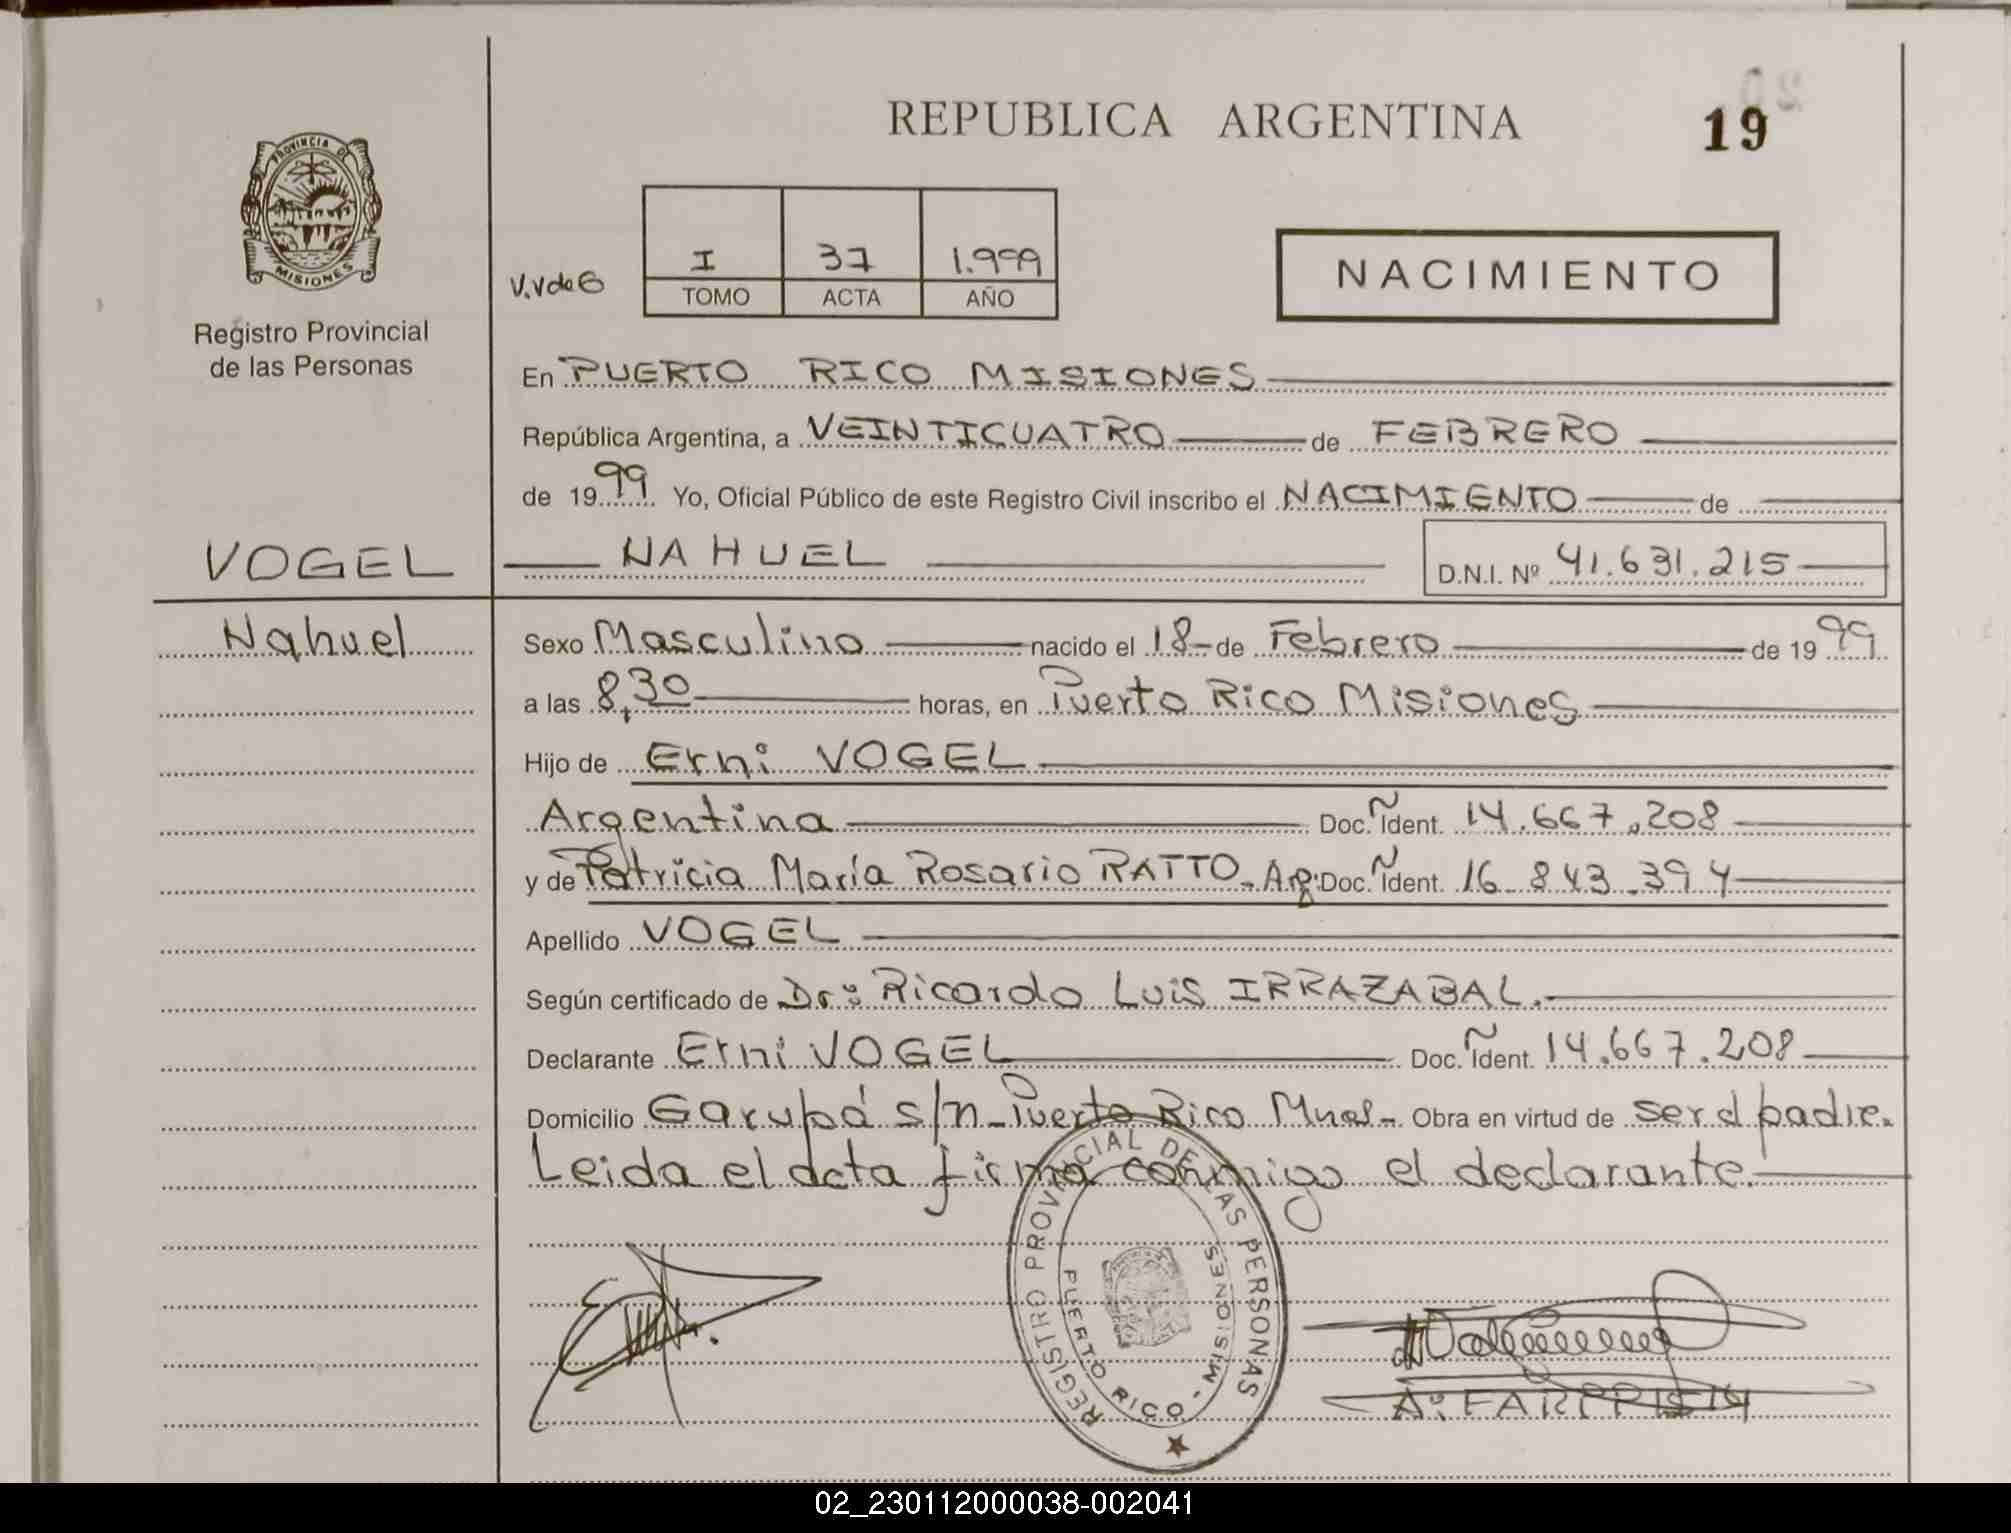 REPUBLICA ARGENTINA
19
PROVINCIA DE
MISIONES
Registro Provincial
de las Personas
I 37 1.999
TOMO ACTA AÑO
NACIMIENTO
En PUERTO RICO MISIONES
República Argentina, a VEINTICUATRO de FEBRERO
de 1999 Yo, Oficial Público de este Registro Civil inscribo el NACIMIENTO de
VOGEL NAHUEL D.N.I. Nº 41.631.215
Nahuel Sexo Masculino nacido el 18- de Febrero de 1999
a las 8,30 horas, en Puerto Rico Misiones
Hijo de Erni VOGEL
Argentina Doc. Ident. 14.667.208
y de Patricia María Rosario RATTO - Arg. Doc. Ident. 16.843.394
Apellido VOGEL
Según certificado de Dr: Ricardo Luis IRRAZABAL.
Declarante Erni VOGEL Doc. Ident. 14.667.208
Domicilio Garupá s/n - Puerto Rico Mnes - Obra en virtud de ser el padre.
Leida el acta firma conmigo el declarante.
REGISTRO PROVINCIAL DE LAS PERSONAS
PUERTO RICO - MISIONES
02_230112000038-002041